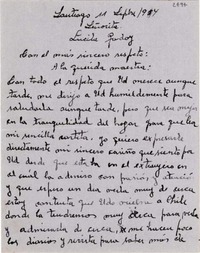 Santiago 11 Sepbre/954
Señorita
Lucila Godoy
Con el más sincero respeto:
A la querida maestra:
Con todo el respeto que Ud merece aunque
tarde, me dirijo a Ud humildemente para
saludarla aunque tarde, pero que sea mejor
en la tranquilidad del hogar para que lea
mi sencilla cartita, yo quiero expresarle
directamente mi sincero cariño que siento por
Ud desde que esta ba en el extranjero en
el cual la admiro con y atención
y que espero un día verla muy de cerca
estoy contenta que Ud vuelva a Chile
donde la tendremos muy cerca para verla
y admirarla de cerca, me hacen poco
los diarios y revista para saber mas de